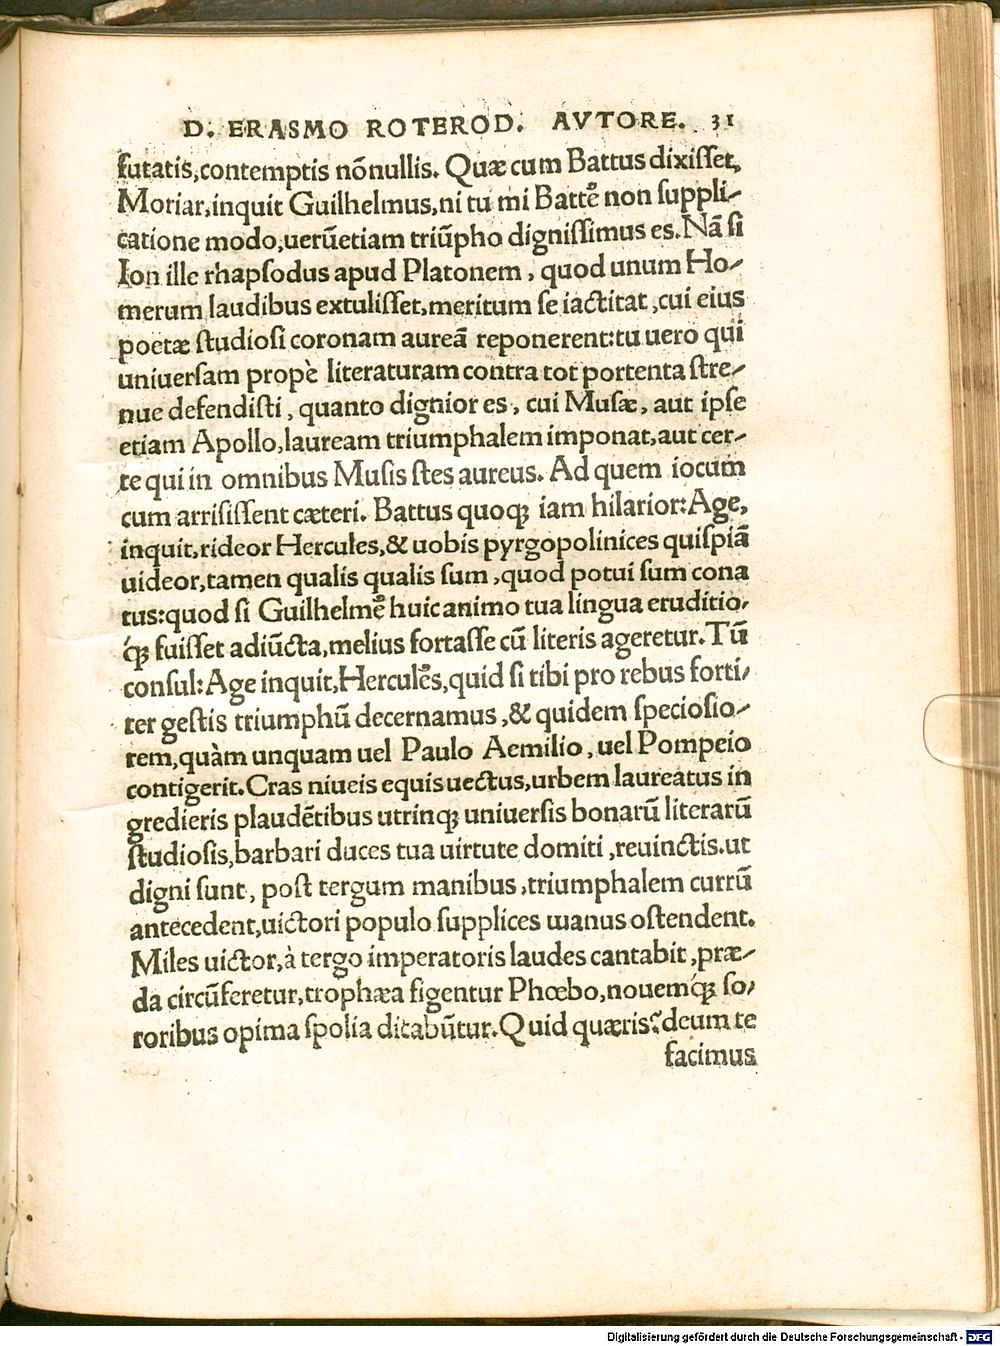 D. ERASMO ROTEROD. AVTORE. 31
futatis,contemptis nõnullis. Quæ cum Battus dixiſſet,
Moriar,inquit Guilhelmus,ni tu mi Batte᷎ non ſuppli-
catione modo,uerũetiam triũpho digniſſimus es.Nã ſi
Ion ille rhapſodus apud Platonem, quod unum Ho-
merum laudibus extuliſſet,meritum ſe iactitat,cui eius
poetæ ſtudioſi coronam aureã reponerent:tu uero qui
uniuerſam propè literaturam contra tot portenta ſtre-
nue defendiſti, quanto dignior es, cui Muſæ, aut ipſe
etiam Apollo,lauream triumphalem imponat,aut cer-
te qui in omnibus Muſis ſtes aureus. Ad quem iocum
cum arriſiſſent cæteri. Battus quoqꝫ iam hilarior:Age,
inquit,rideor Hercules,& uobis pyrgopolinices quiſpiã
uideor,tamen qualis qualis ſum,quod potui ſum cona
tus:quod ſi Guilhelme᷎ huic animo tua lingua eruditio-
q́ꝫ fuiſſet adiũcta,melius fortaſſe cũ literis ageretur.Tũ
conſul:Age inquit,Hercule᷎s,quid ſi tibi pro rebus forti-
ter geſtis triumphũ decernamus,& quidem ſpecioſio-
rem,quàm unquam uel Paulo Aemilio,uel Pompeio
contigerit.Cras niueis equis uectus,urbem laureatus in
gredieris plaudẽtibus utrinqꝫ uniuerſis bonarũ literarũ
ſtudioſis,barbari duces tua uirtute domiti,reuinctis.ut
digni ſunt, poſt tergum manibus,triumphalem currũ
antecedent,uictori populo ſupplices manus oſtendent.
Miles uictor,à tergo imperatoris laudes cantabit,præ-
da circũferetur,trophæa figentur Phœbo,nouemq́ꝫ ſo-
roribus opima ſpolia dicabũtur.Quid quæris?deum te
facimus
Digitalisierung gefördert durch die Deutsche Forschungsgemeinschaft - DFG